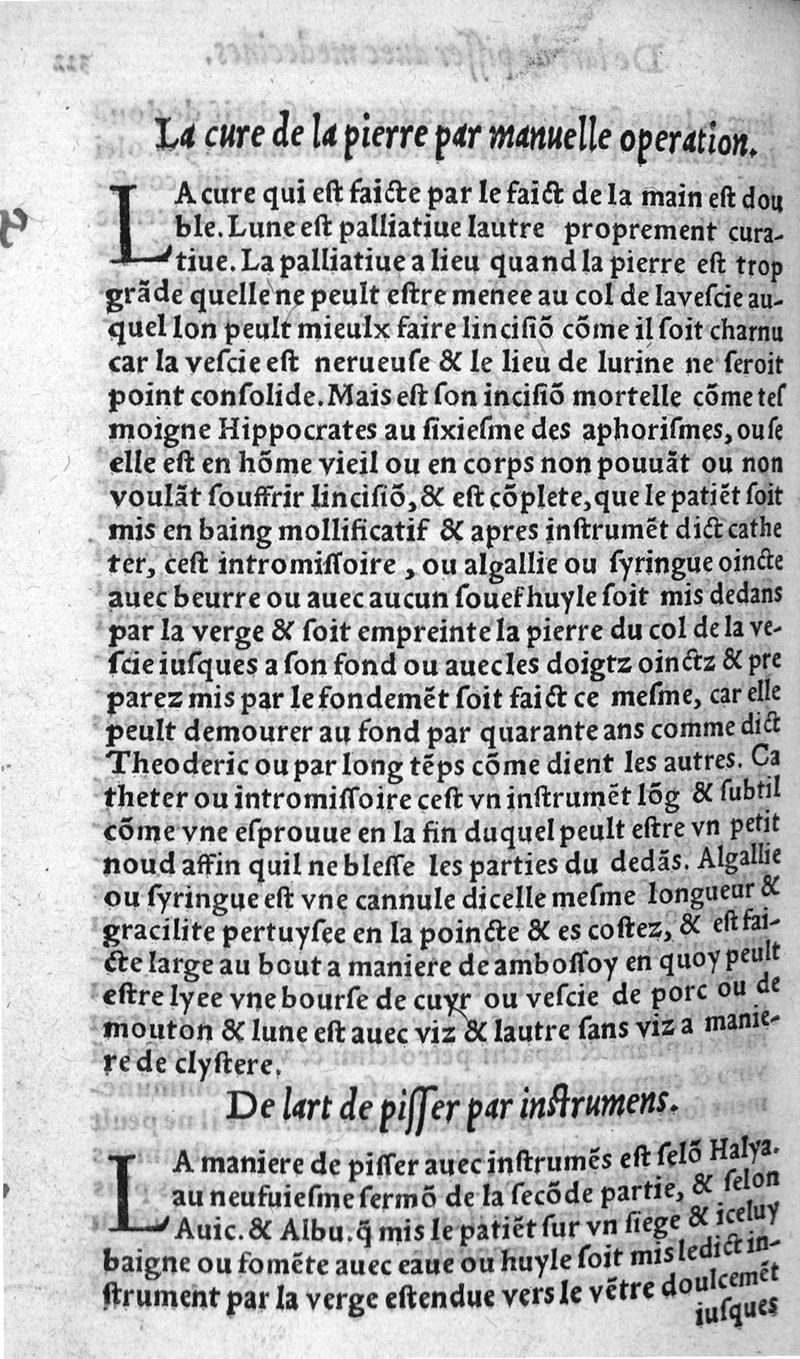 La cure de la pierre par manuelle operation.
LA cure qui eſt faicte par le faict de la main eſt dou
ble. Lune eſt palliatiue lautre proprement cura-
tiue. La palliatiue a lieu quand la pierre eſt trop
grãde quelle ne peult eſtre menee au col de laveſcie au-
quel lon peult mieulx faire linciſiõ cõme il ſoit charnu
car la veſcie eſt nerueuſe & le lieu de lurine ne ſeroit
point conſolide. Mais eſt ſon inciſiõ mortelle cõme teſ
moigne Hippocrates au ſixieſme des aphoriſmes, ou ſe
elle eſt en hõme vieil ou en corps non pouuãt ou non
voulãt ſouffrir linciſiõ, & eſt cõplete, que le patiẽt ſoit
mis en baing mollificatif & apres inſtrumẽt dict cathe
ter, ceſt intromiſſoire , ou algallie ou ſyringue oincte
auec beurre ou auec aucun ſouef huyle ſoit mis dedans
par la verge & ſoit empreinte la pierre du col de la ve-
ſcie iuſques a ſon fond ou auec les doigtz oinctz & pre
parez mis par le fondemẽt ſoit faict ce meſme, car elle
peult demourer au fond par quarante ans comme dict
Theoderic ou par long tẽps cõme dient les autres. Ca
theter ou intromiſſoire ceſt vn inſtrumẽt lõg & ſubtil
cõme vne eſprouue en la fin duquel peult eſtre vn petit
noud affin quil ne bleſſe les parties du dedãs. Algallie
ou ſyringue eſt vne cannule dicelle meſme longueur &
gracilite pertuyſee en la poincte & es coſtez, & eſt fai-
cte large au bout a maniere de amboſſoy en quoy peult
eſtre lyee vne bourſe de cuyr ou veſcie de porc ou de
mouton & lune eſt auec viz & lautre ſans viz a manie-
re de clyſtere.
De lart de piſſer par inſtrumens.
LA maniere de piſſer auec inſtrumẽs eſt ſelõ Halya.
au neufuieſme ſermõ de la ſecõde partie, & ſelon
Auic. & Albu. q̃ mis le patiẽt ſur vn ſiege & iceluy
baigne ou fomẽte auec eaue ou huyle ſoit mis ledict in-
ſtrument par la verge eſtendue vers le vẽtre doulcemẽt
iuſques